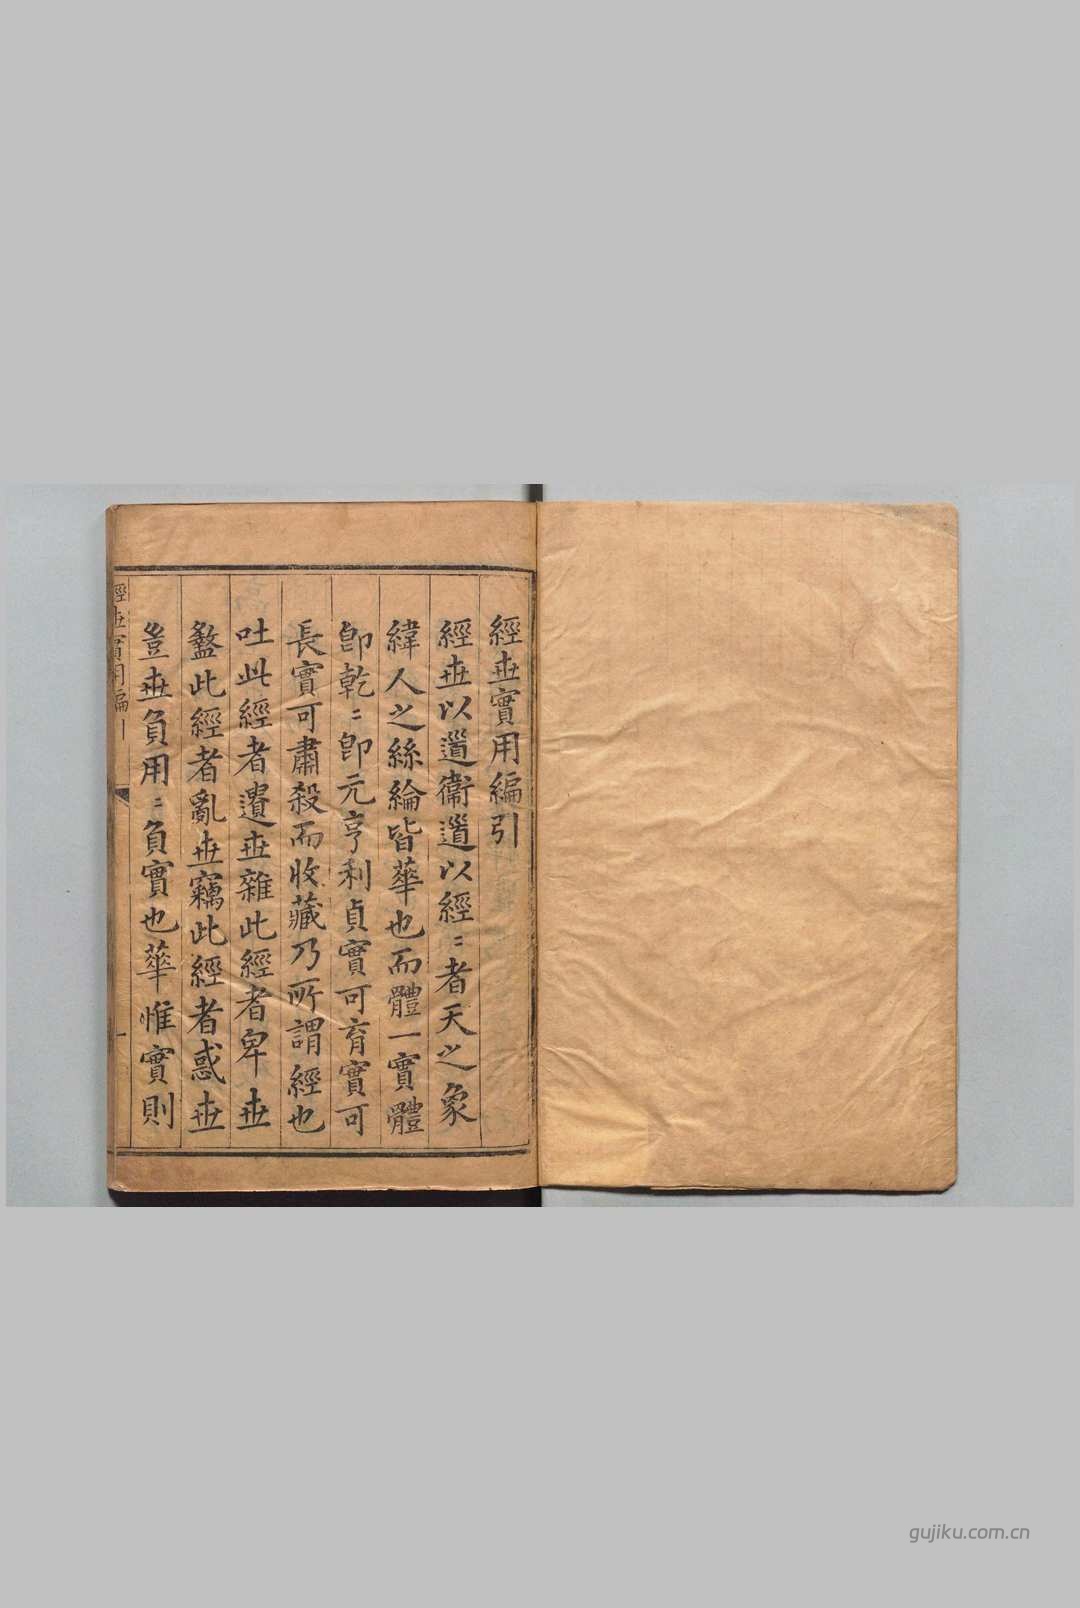 經世實用編引
經世以道衞道以經〻者天之象
緯人之絲綸皆華也而體一實體
卽乾〻卽元亨利貞實可育實可
長實可肅殺而收藏乃所謂經也
吐此經者遺世雜此經者卑世
盭此經者亂世竊此經者惑世
豈世負用〻負實也華惟實則
經世實用編引
一
gujiku.com.cn